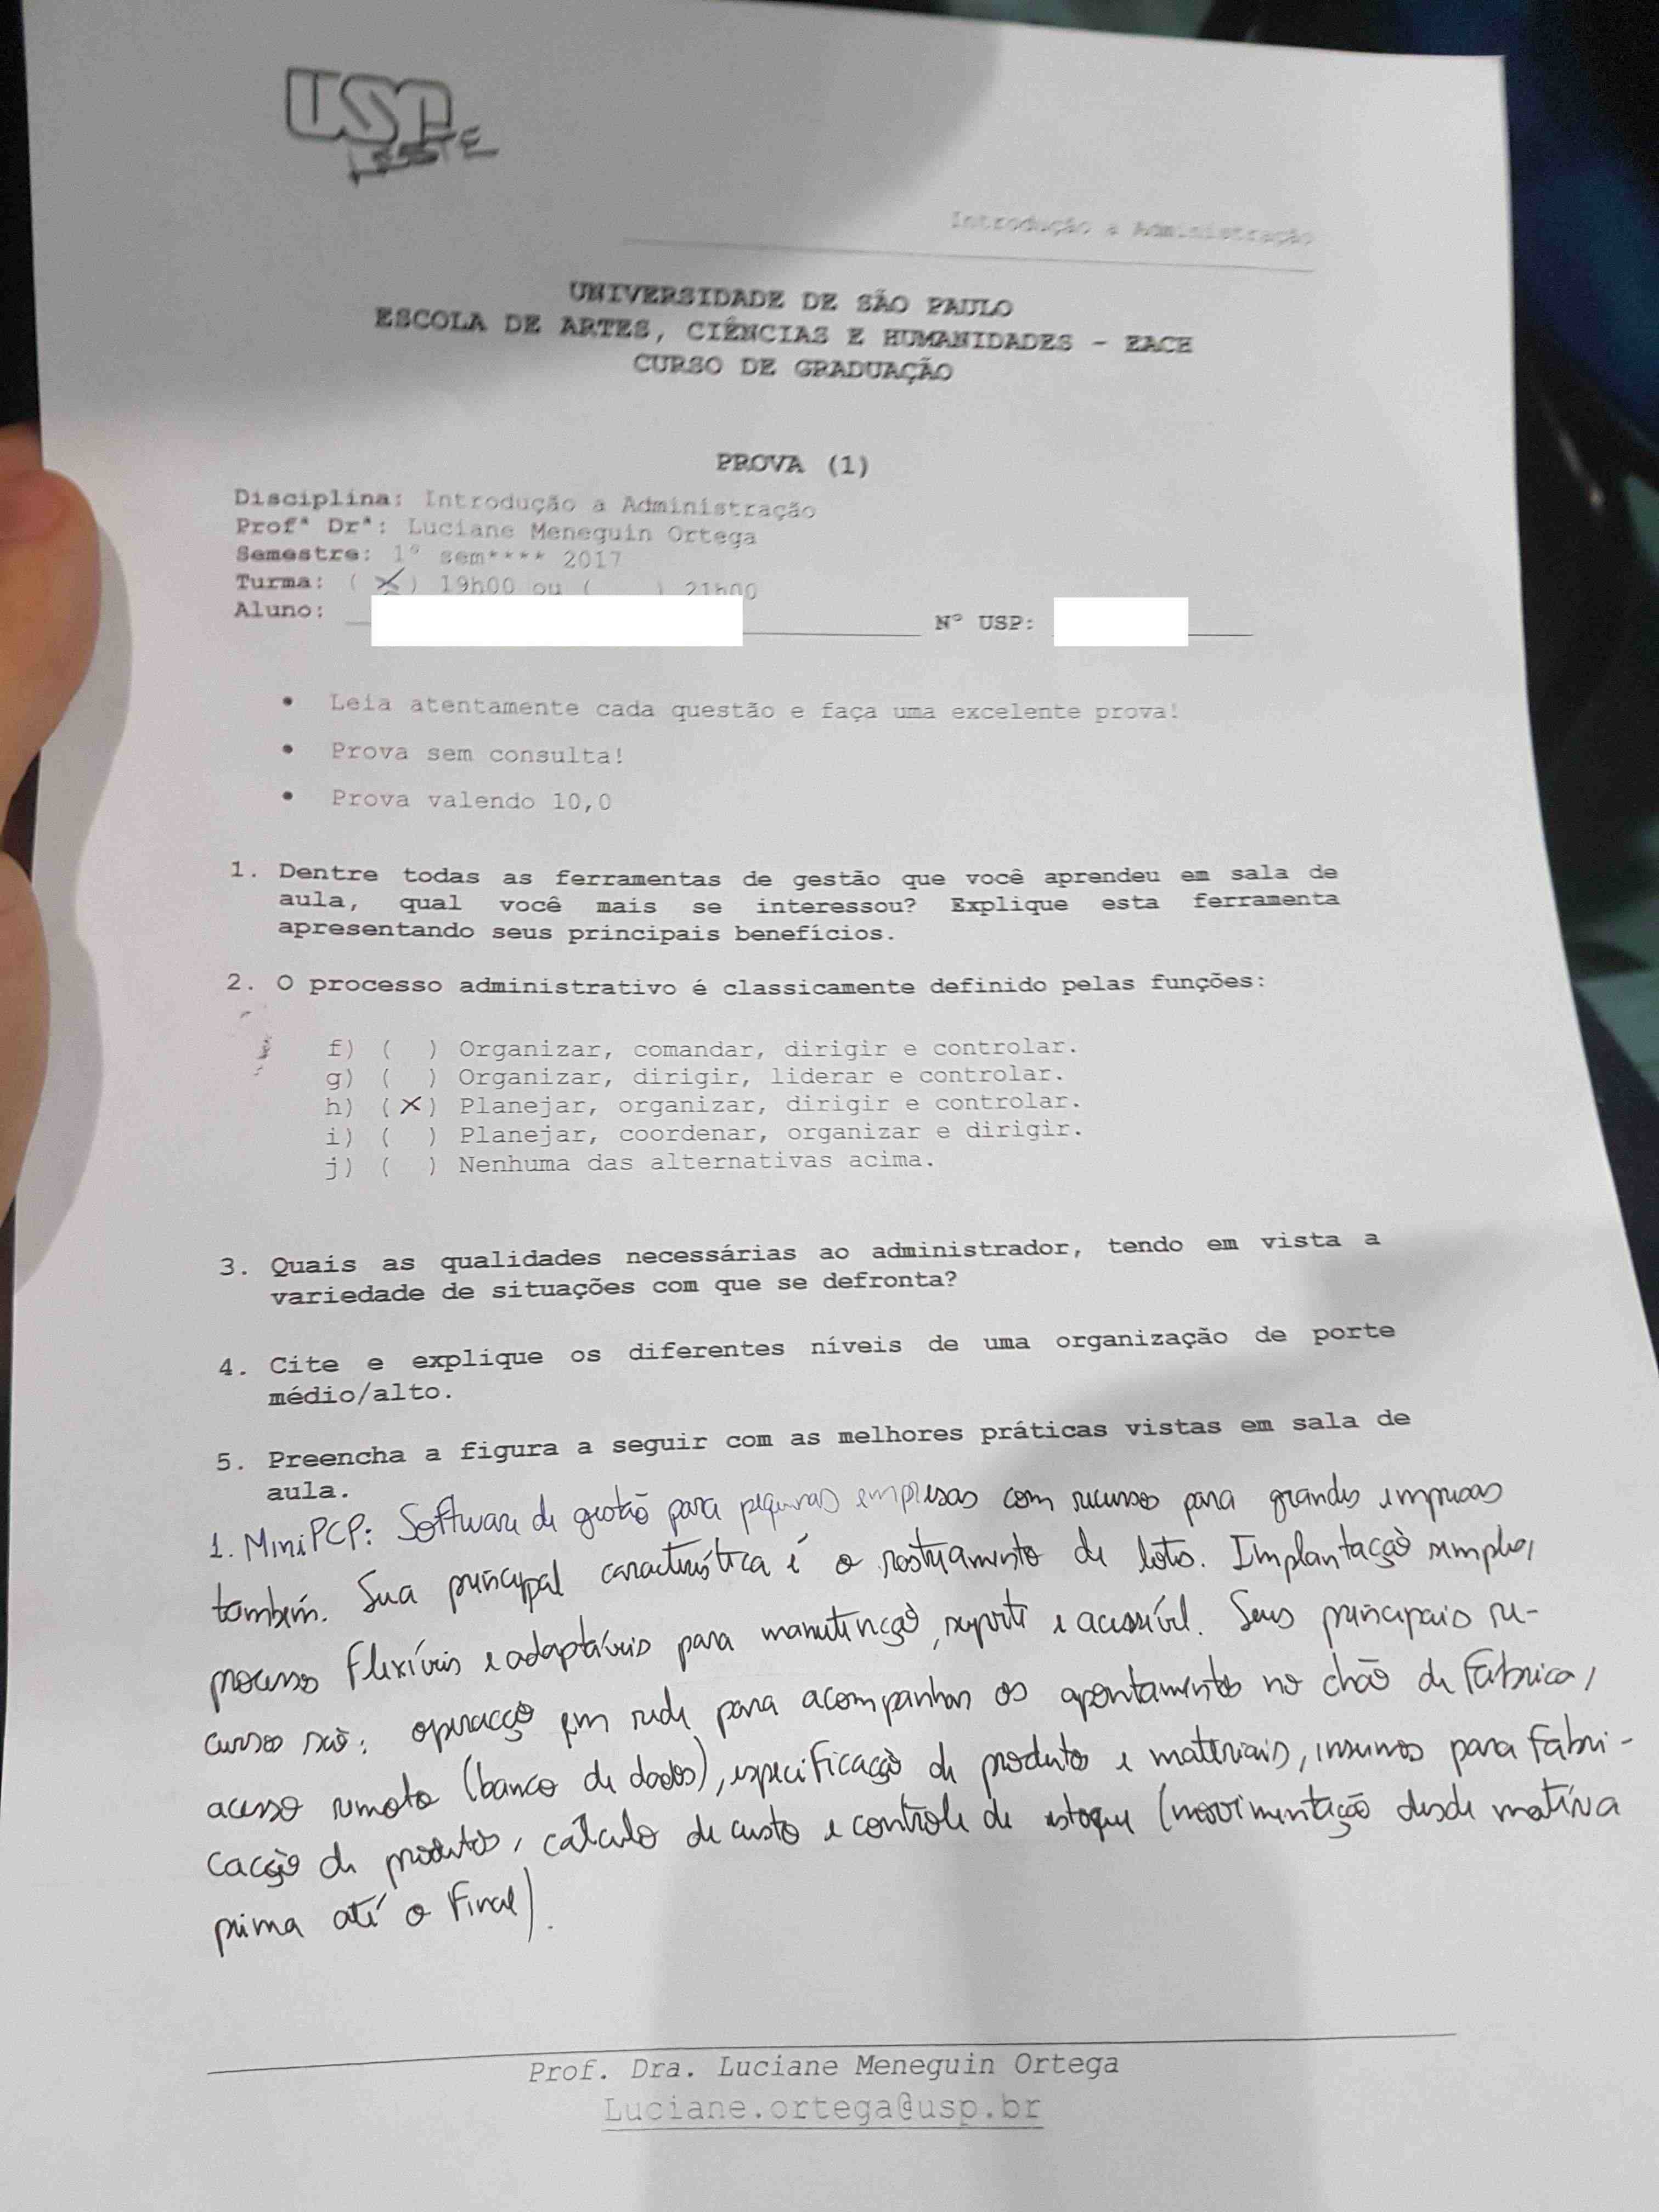 USP
LESTE
Introdução a Administração
UNIVERSIDADE DE SÃO PAULO
ESCOLA DE ARTES, CIÊNCIAS E HUMANIDADES - EACH
CURSO DE GRADUAÇÃO
PROVA (1)
Disciplina: Introdução a Administração
Profª Drª: Luciane Meneguin Ortega
Semestre: 1º sem**** 2017
Turma: ( X ) 19h00 ou ( ) 21h00
Aluno: Nº USP:
• Leia atentamente cada questão e faça uma excelente prova!
• Prova sem consulta!
• Prova valendo 10,0
1. Dentre todas as ferramentas de gestão que você aprendeu em sala de
aula, qual você mais se interessou? Explique esta ferramenta
apresentando seus principais benefícios.
2. O processo administrativo é classicamente definido pelas funções:
f) ( ) Organizar, comandar, dirigir e controlar.
g) ( ) Organizar, dirigir, liderar e controlar.
h) (X) Planejar, organizar, dirigir e controlar.
i) ( ) Planejar, coordenar, organizar e dirigir.
j) ( ) Nenhuma das alternativas acima.
3. Quais as qualidades necessárias ao administrador, tendo em vista a
variedade de situações com que se defronta?
4. Cite e explique os diferentes níveis de uma organização de porte
médio/alto.
5. Preencha a figura a seguir com as melhores práticas vistas em sala de
aula.
1. MiniPCP: Software de gestão para pequenas empresas com recursos para grandes empresas
também. Sua principal característica é o rastreamento de lotes. Implantação simples,
processos flexíveis e adaptáveis para manutenção, suporte e acessível. Seus principais re-
cursos são: operação em rede para acompanhar os apontamentos no chão de fábrica,
acesso remoto (banco de dados), especificação de produtos e materiais, insumos para fabri-
cação de produtos, cálculo de custo e controle de estoque (movimentação desde matéria
prima até o final).
Prof. Dra. Luciane Meneguin Ortega
Luciane.ortega@usp.br